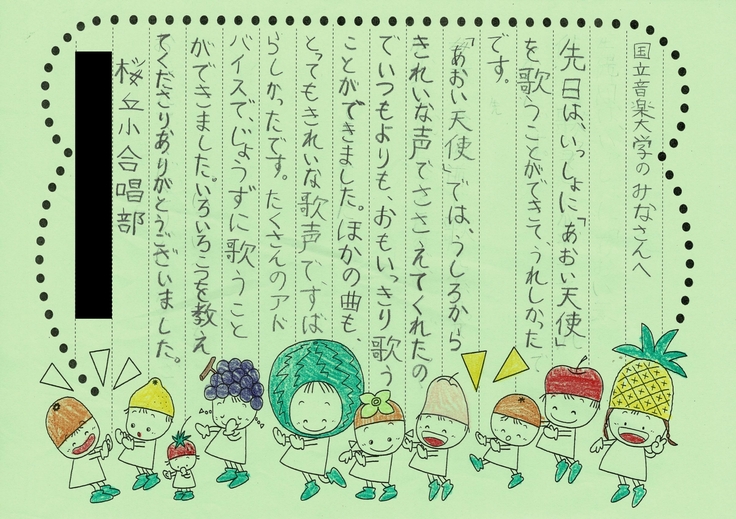 国立音楽大学のみなさんへ
先日は、いっしょに「あおい天使」
を歌うことができて、うれしかった
です。
「あおい天使」では、うしろから
きれいな声でささえてくれたの
でいつもよりも、おもいっきり歌う
ことができました。ほかの曲も、
とってもきれいな歌声で、すば
らしかったです。たくさんのアド
バイスで、じょうずに歌うこと
ができました。いろいろを教え
てくださりありがとうございました。
桜丘小合唱部